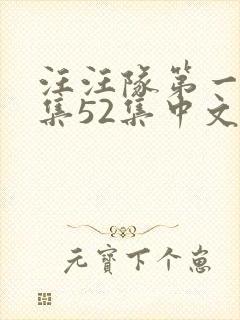 汪汪队第一
集52集中文
元寳下个崽